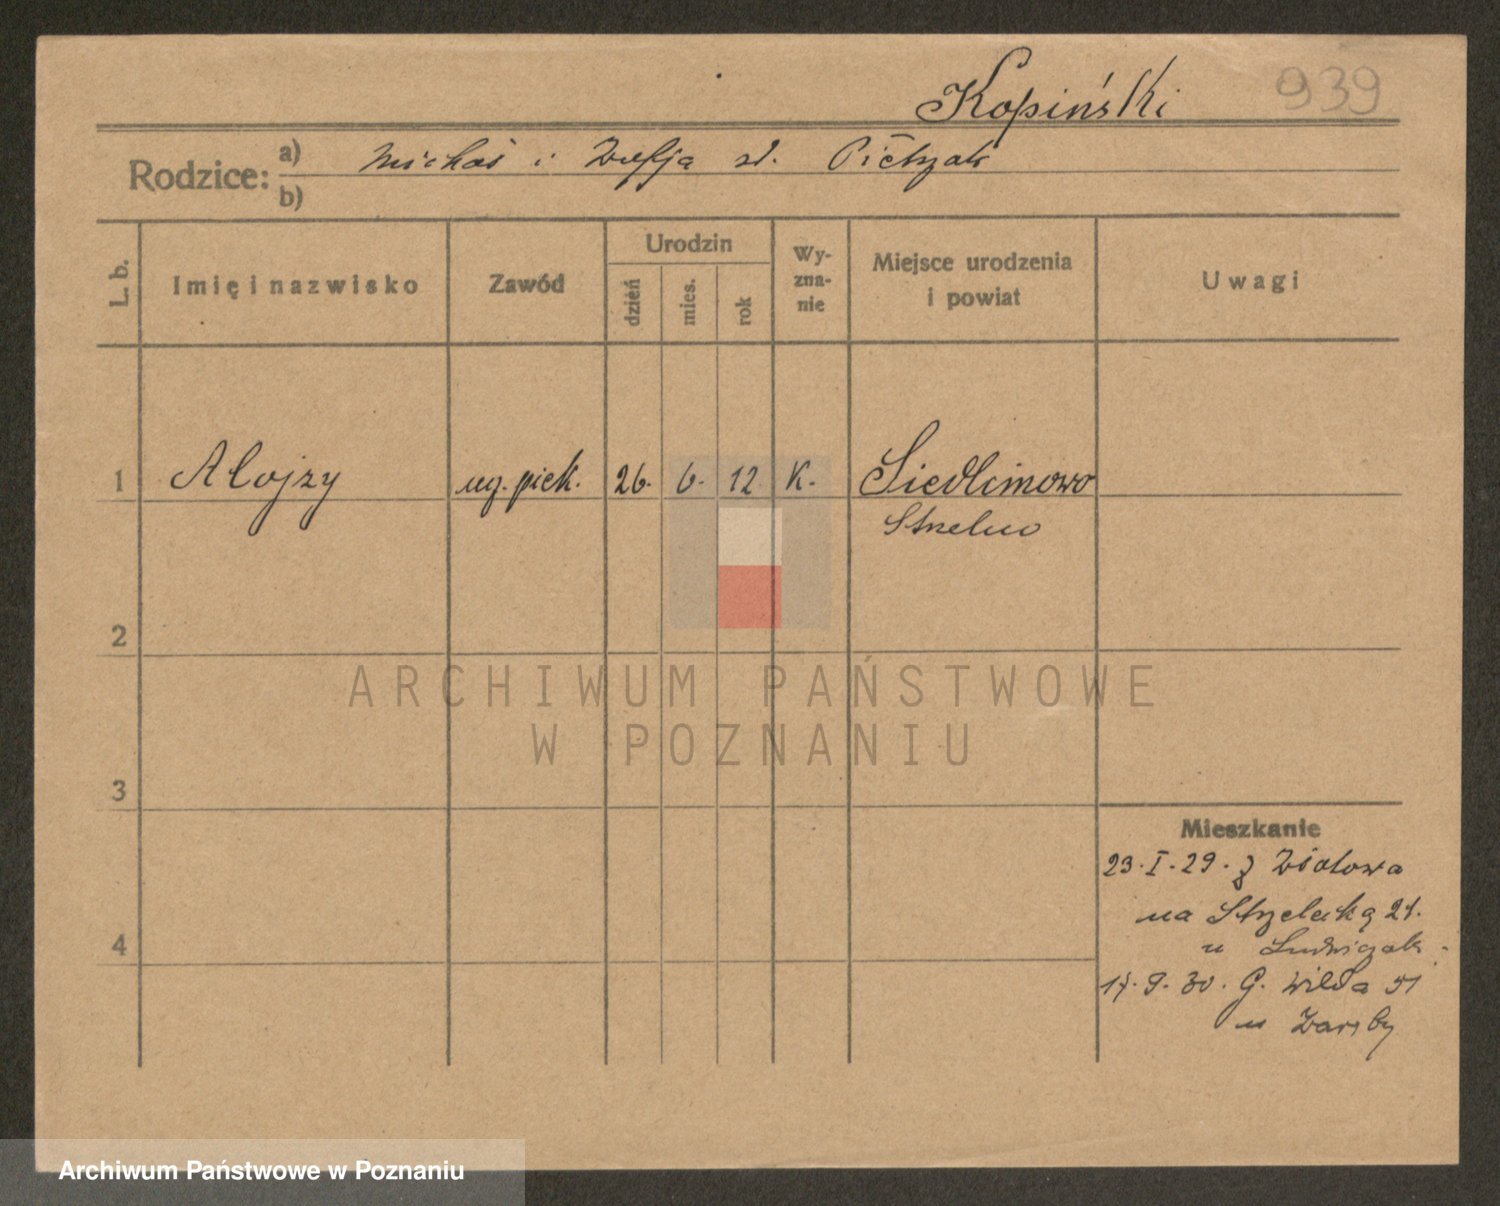 Kopiński 939
Rodzice: a) Michał i Zofja zd. Pietrzak
b)
L. b. Imię i nazwisko Zawód Urodzin dzień mies. rok Wyznanie Miejsce urodzenia i powiat Uwagi
1 Alojzy ucz. piek. 26. 6. 12 K. Siedlimowo
Strzelno
2
ARCHIWUM PAŃSTWOWE
W POZNANIU
3
Mieszkanie
23.I.29. z
na Strzelecką 21.
4
u Ludwiczak
9.30. G. Wilda 51
u
Archiwum Państwowe w Poznaniu